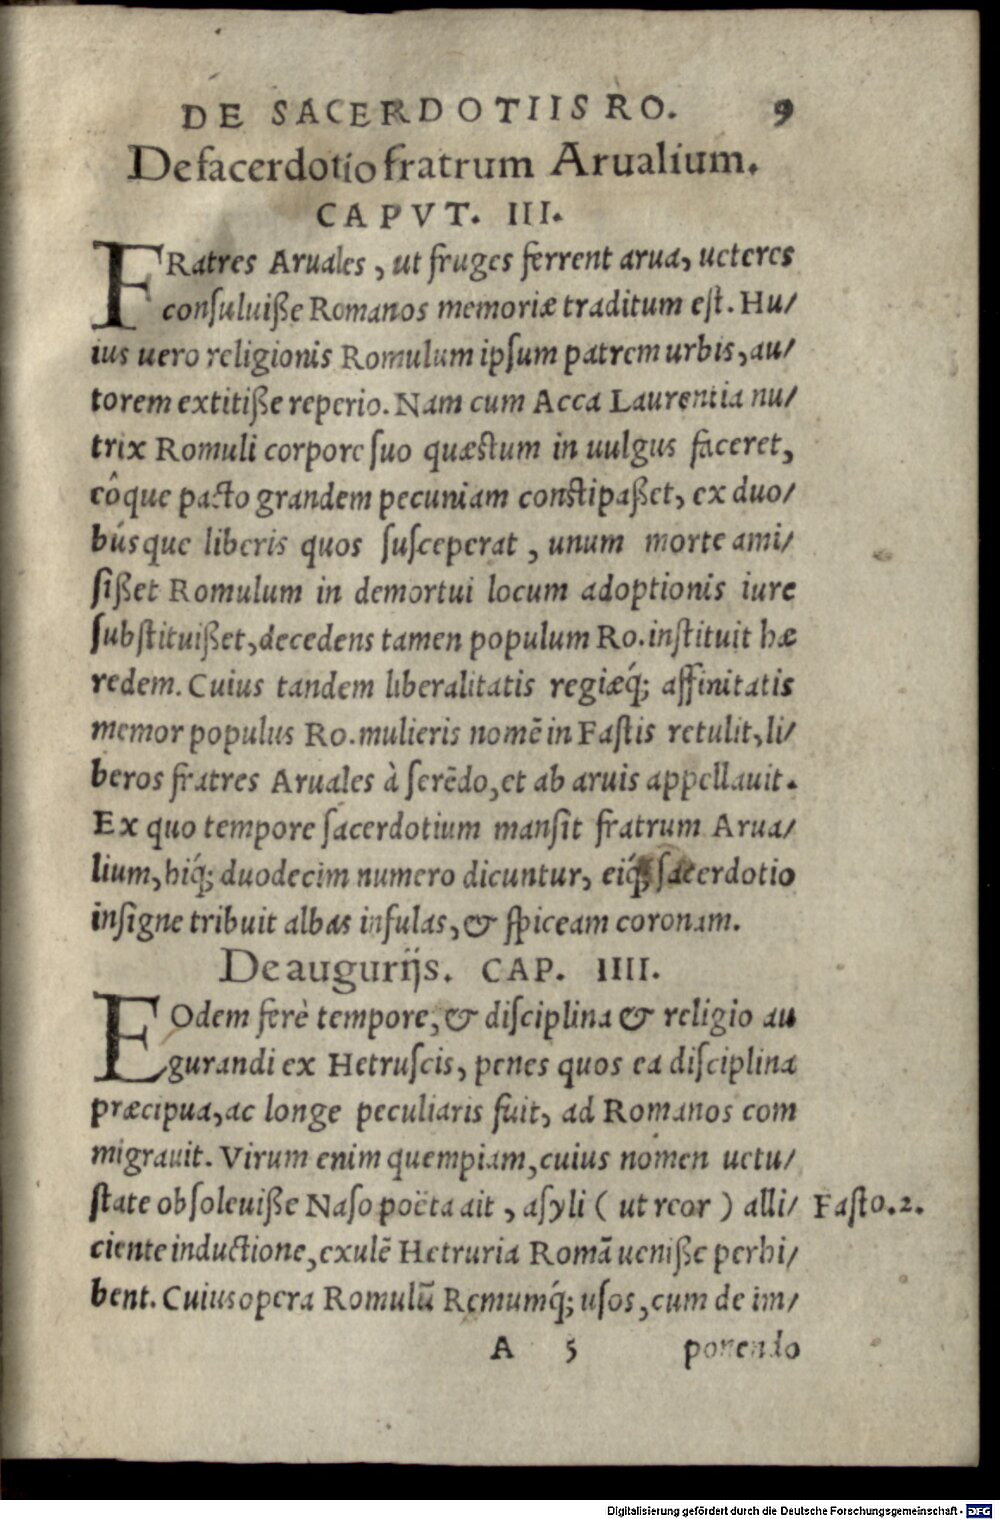 DE SACERDOTIIS RO. 9
De ſacerdotio fratrum Arualium.
CAPVT. III.
FRatres Aruales, ut fruges ferrent arua, ueteres
conſuluiße Romanos memoriæ traditum eſt. Hu/
ius uero religionis Romulum ipſum patrem urbis, au/
torem extitiße reperio. Nam cum Acca Laurentia nu/
trix Romuli corpore ſuo quæstum in uulgus faceret,
eôque pacto grandem pecuniam constipaßet, ex duo/
búsque liberis quos ſuſceperat, unum morte ami/
ſißet Romulum in demortui locum adoptionis iure
ſubſtituißet, decedens tamen populum Ro. inſtituit hæ
redem. Cuius tandem liberalitatis regiæq́; affinitatis
memor populus Ro. mulieris nomē in Faſtis retulit, li/
beros fratres Aruales à ſerēdo, et ab aruis appellauit.
Ex quo tempore ſacerdotium manſit fratrum Arua/
lium, hiq́; duodecim numero dicuntur, eiq́; ſacerdotio
inſigne tribuit albas infulas, & ſpiceam coronam.
De augurijs. CAP. IIII.
EOdem ferè tempore, & diſciplina & religio au
gurandi ex Hetruſcis, penes quos ea diſciplina
præcipua, ac longe peculiaris fuit, ad Romanos com
migrauit. Virum enim quempiam, cuius nomen uetu/
ſtate obſoleuiße Naſo poëta ait, aſyli (ut reor) alli/ Faſto. 2.
ciente inductione, exulē Hetruria Romā ueniße perhi/
bent. Cuius opera Romulū Remumq́; uſos, cum de im/
A 5 ponendo
Digitalisierung gefördert durch die Deutsche Forschungsgemeinschaft - DFG